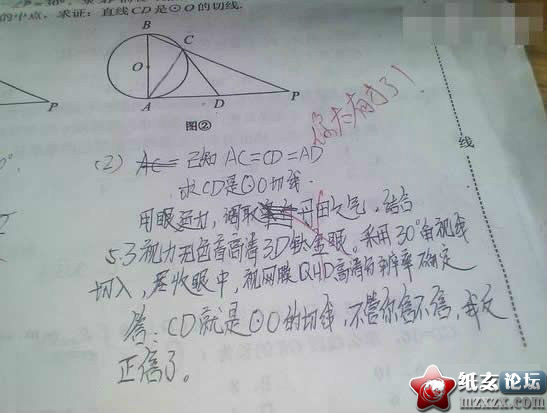 P=30°,
的中点，求证：直线CD是⊙O的切线.
B
C
O
A
D
P
P
图②
你太有才了！
(2) AC= 已知 AC=CD=AD
求CD是⊙O切线.
用眼运力，调取丹田之气，结合
5.3视力无色盲高清3D钛金眼。采用30°角视线
切入，尽收眼中，视网膜QHD高清分辨率确定
答：CD就是⊙O的切线，不管你信不信，我反
正信了。
线
纸玄论坛
mzxzx.com